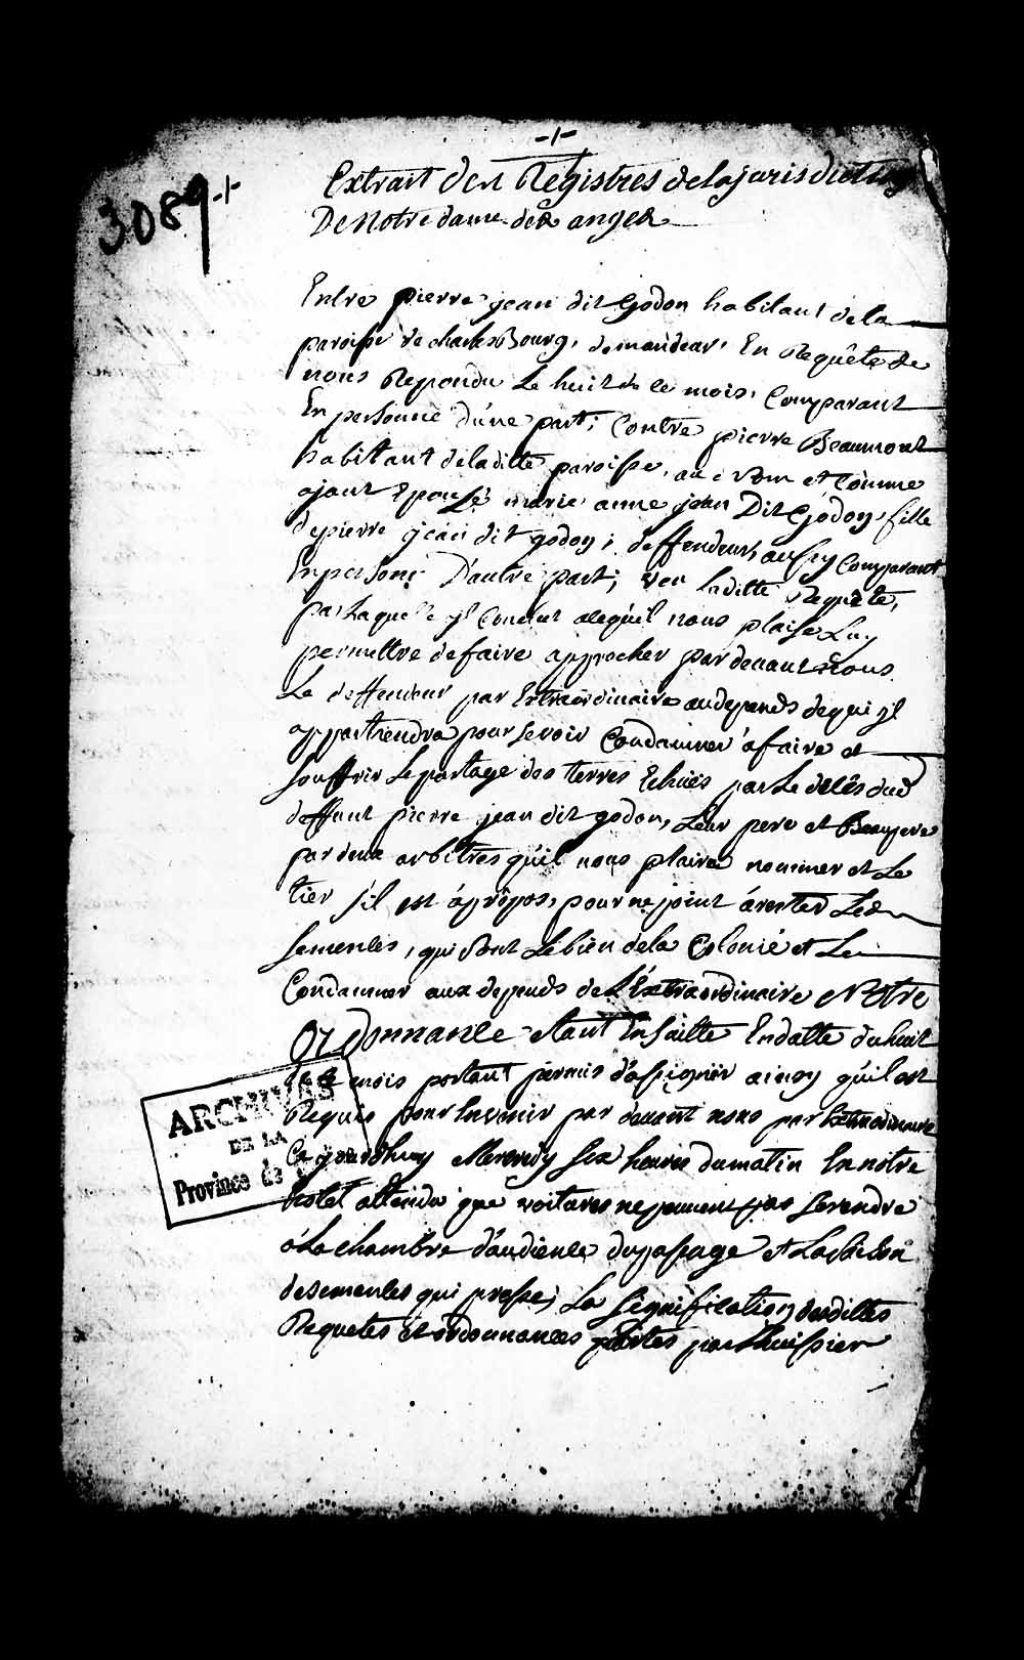 3089
Extrait des Registres delajurisdiction
De Notre dame des anges
Entre pierre jean dit Godon habitant dela
paroisse de charlesBourg, demandeur, En Requête de
nous Repondu Le huit de ce mois, Comparant
En personne d'une part; Contre pierre Beaumont
habitant deladitte paroisse, au nom et Comme
ajant Epousé marie anne jean Dit Godon, fille
depierre jean dit godon; deffendeur, aussy Comparant
Enpersone D'autre part; veu laditte Requête,
par Laquelle yl Conclut acequ'il nous plaise Luy
permettre defaire approcher pardevant Nous
Le deffendeur par Extraordinaire audepends dequi yl
appartiendra pour sevoir Condamner àfaire et
souffrir Lepartage des terres Echües par Le décès dud
deffunt pierre jean dit godon, Leur pere et Beaupere
par deux arbitres qu'il nous plaira nommer et Le
tier s'il est àpropos, pour ne point arester Les
semences, qui sont Lebien dela Colonie et Le
Condamner aux depends de L'Extraordinaire Notre
Ordonnance Etant Ensuitte Endatte du huit
de ce mois portant permis d'assigner ainsy qu'il est
Requis pour Envenir par devant nous par Extraordinaire
Ce jourdhuy Mercredy six heures dumatin En notre
hotel attendu que voitures nepeuvent pas Serendre
à La chambre d'audience du passage et La saison
desemences qui presse; La signification desdittes
Requetes et ordonnances faites par huissier
ARCHIVES
DE LA
Province de